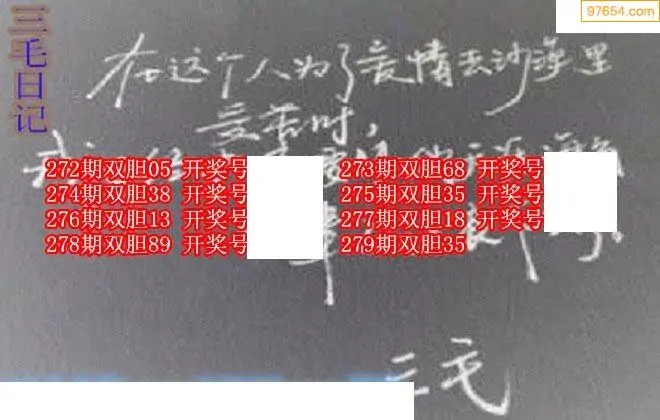 97654.com
三毛日记
在这个人为了爱情去沙漠里
受苦时,
272期双胆05 开奖号
273期双胆68 开奖号
274期双胆38 开奖号
275期双胆35 开奖号
276期双胆13 开奖号
277期双胆18 开奖号
278期双胆89 开奖号
279期双胆35
三毛